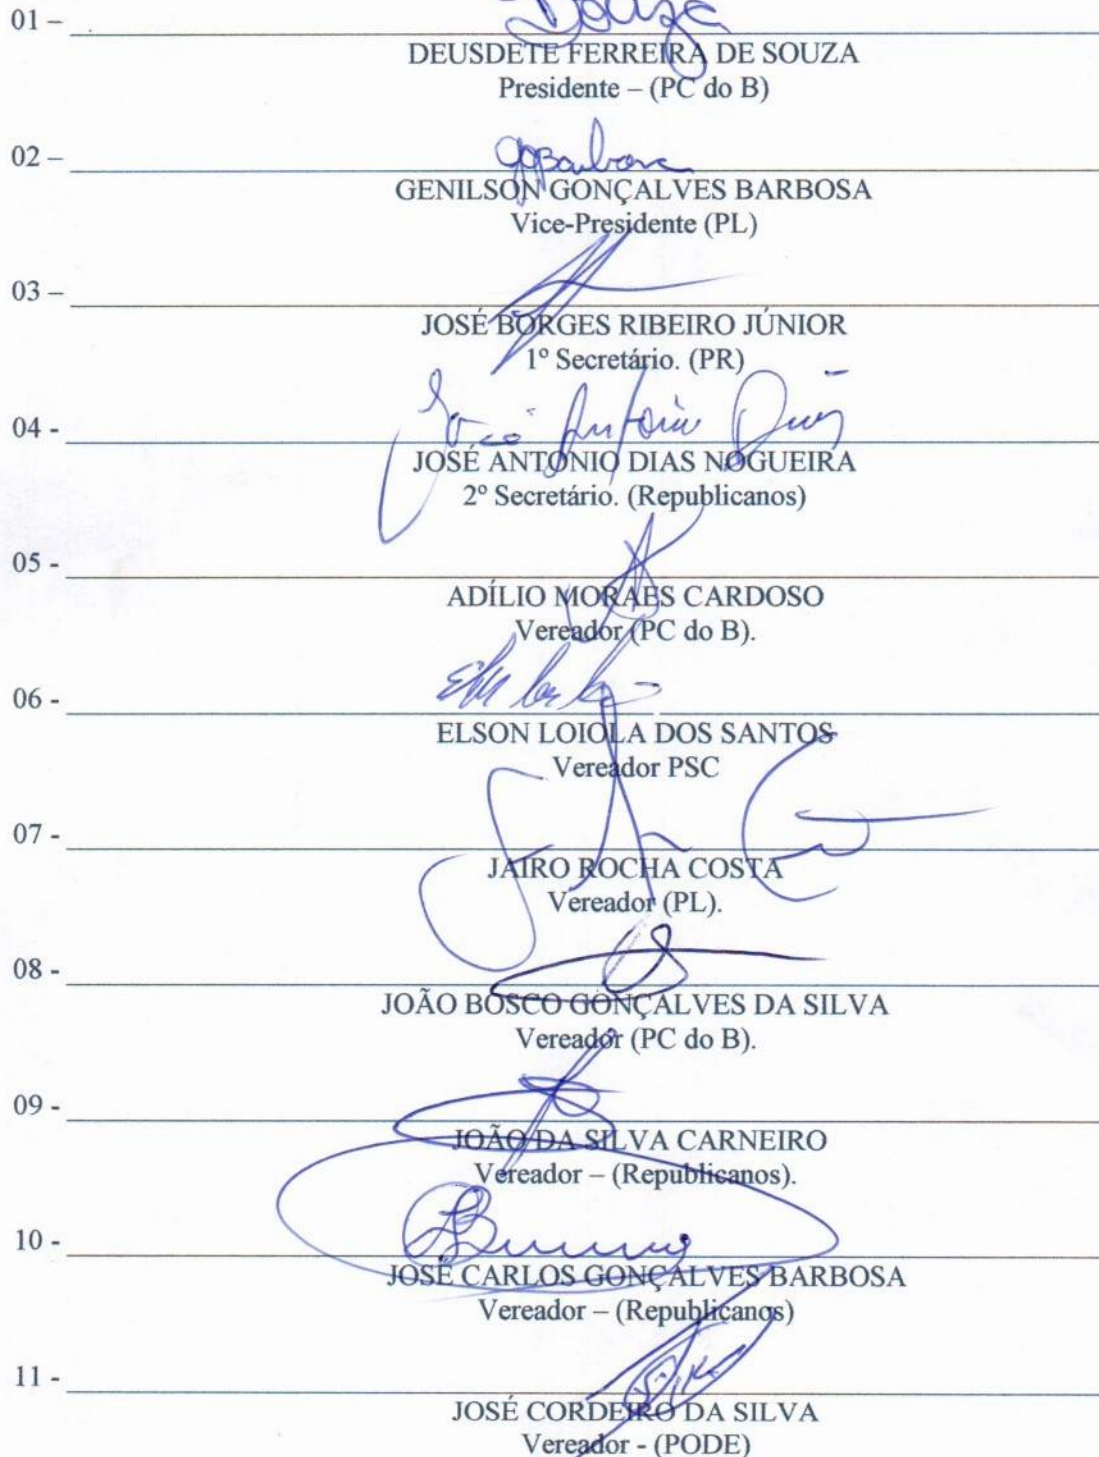 01 –
DEUSDETE FERREIRA DE SOUZA
Presidente – (PC do B)
02 –
GENILSON GONÇALVES BARBOSA
Vice-Presidente (PL)
03 –
JOSÉ BORGES RIBEIRO JÚNIOR
1º Secretário. (PR)
José Antonio Dias
04 -
JOSÉ ANTÔNIO DIAS NOGUEIRA
2º Secretário. (Republicanos)
05 -
ADÍLIO MORAES CARDOSO
Vereador (PC do B).
06 -
ELSON LOIOLA DOS SANTOS
Vereador PSC
07 -
JAIRO ROCHA COSTA
Vereador (PL).
08 -
JOÃO BOSCO GONÇALVES DA SILVA
Vereador (PC do B).
09 -
JOÃO DA SILVA CARNEIRO
Vereador – (Republicanos).
10 -
JOSÉ CARLOS GONÇALVES BARBOSA
Vereador – (Republicanos)
11 -
JOSÉ CORDEIRO DA SILVA
Vereador - (PODE)